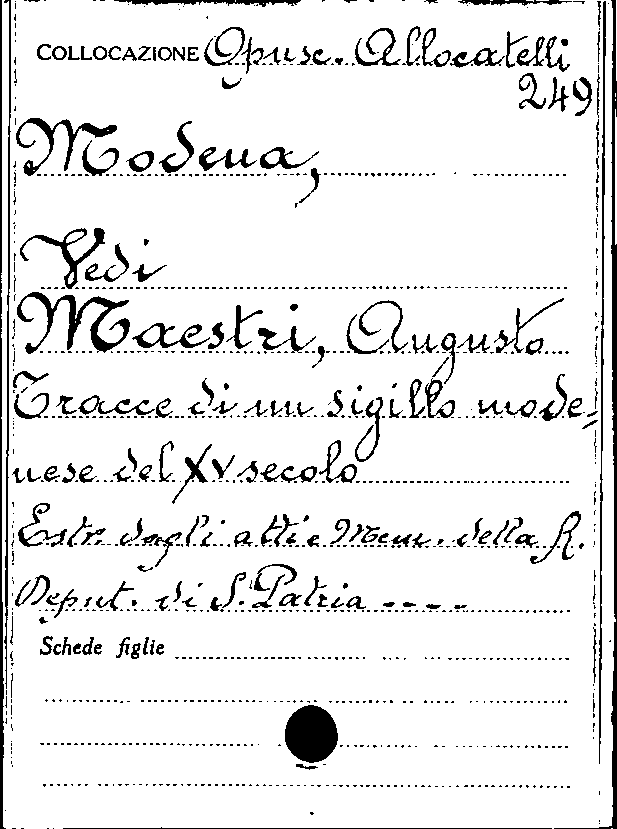 COLLOCAZIONE Opusc. Allocatelli
249
Modena,
Vedi
Maestri, Augusto
Tracce di un sigillo mode=
nese del XV secolo
Estr. dagli atti e Mem. della R.
Deput. di S. Patria ----
Schede figlie